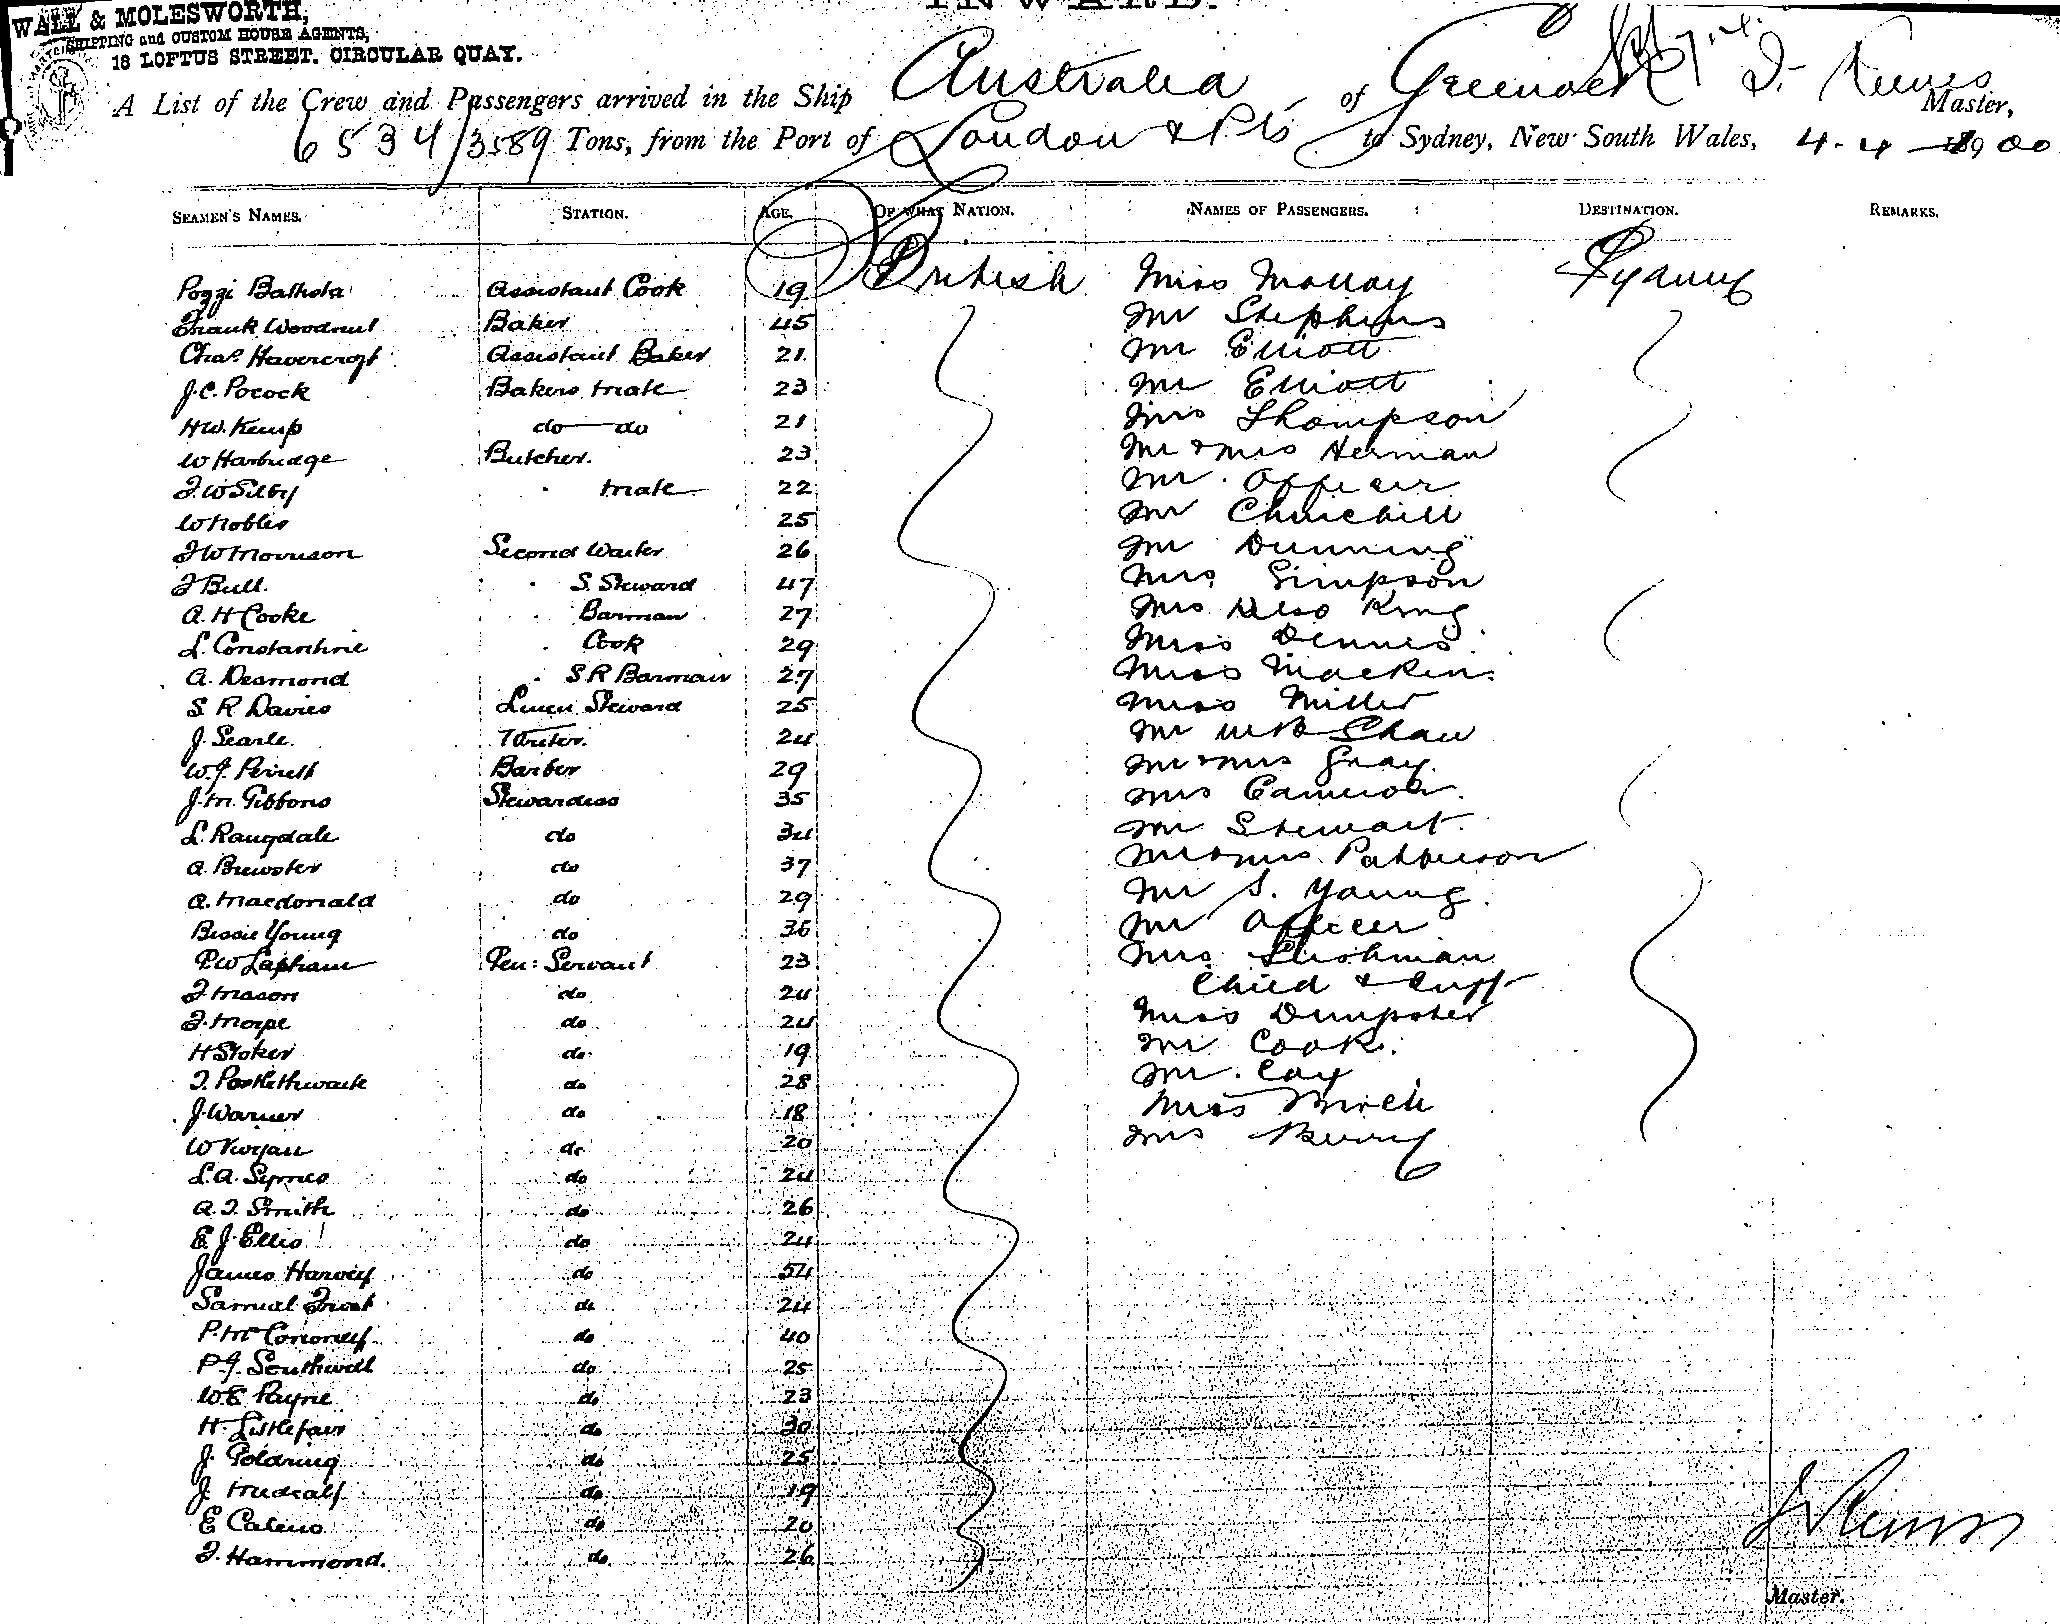 INWARD.
WALL & MOLESWORTH,
SHIPPING and CUSTOM HOUSE AGENTS,
18 LOFTUS STREET. CIRCULAR QUAY.
A List of the Crew and Passengers arrived in the Ship Australia of Greenock Master,
6534/3589 Tons, from the Port of London & Pts to Sydney, New South Wales, 4-4-1900
SEAMEN'S NAMES. STATION. AGE. OF WHAT NATION. NAMES OF PASSENGERS. DESTINATION. REMARKS.
Poggi Battista Assistant Cook 19 British Miss Molloy Sydney
Frank Woodnut Baker 45 Mr Stephens
Chas. Havercroft Assistant Baker 21 Mr Elliott
J.C. Pocock Bakers Mate 23 Mr Elliott
H.W. Kemp do do 21 Mrs Thompson
W Harbridge Butcher. 23 Mr & Mrs Herman
mate 22 Mr. Officer
W Nobles 25 Mr Churchill
J W Morrison Second Waiter 26 Mr Dunning
J Bull. S. Steward 47 Mrs Simpson
A. H Cooke Barman 27 King
L. Constantine Cook 29 Miss Dennis
A. Desmond S R Barman 27 Miss Mackin
S R Davies Linen Steward 25 Miss Miller
J. Searle. Writer. 24 Mr Shaw
W.J. Perrett Barber 29 Mr & Mrs Gray.
J.M. Gibbons Stewardess 35 Mrs Cameron.
L. Rangdale do 34 Mr Stewart.
A. Brewster do 37 Mr & Mrs Patterson
A. Macdonald do 29 Mr S. Young
Bessie Young do 36 Mr Officer
P.W Lapham Gen: Servant 23 Mrs Lishman
J. Mason do 24 Child & Inft
J. Thorpe do 24 Miss Dempster
H Stoker do 19 Mr Cook.
J. Postlethwaite do 28 Mr. Coy
J. Warner do 18 Miss Birch
W do 20 Mrs Berry
L.A. Symes do 24
A. J. Smith do 26
E. J. Ellis do 24
James Harvey do 54
Samuel Frost do 24
P. McConomy do 40
P J. Southwell do 25
W E Payne do 23
H. Littlefair do 30
J. Goldring do 25
J. do 19
E do 20
J. Hammond. do 26
Master.